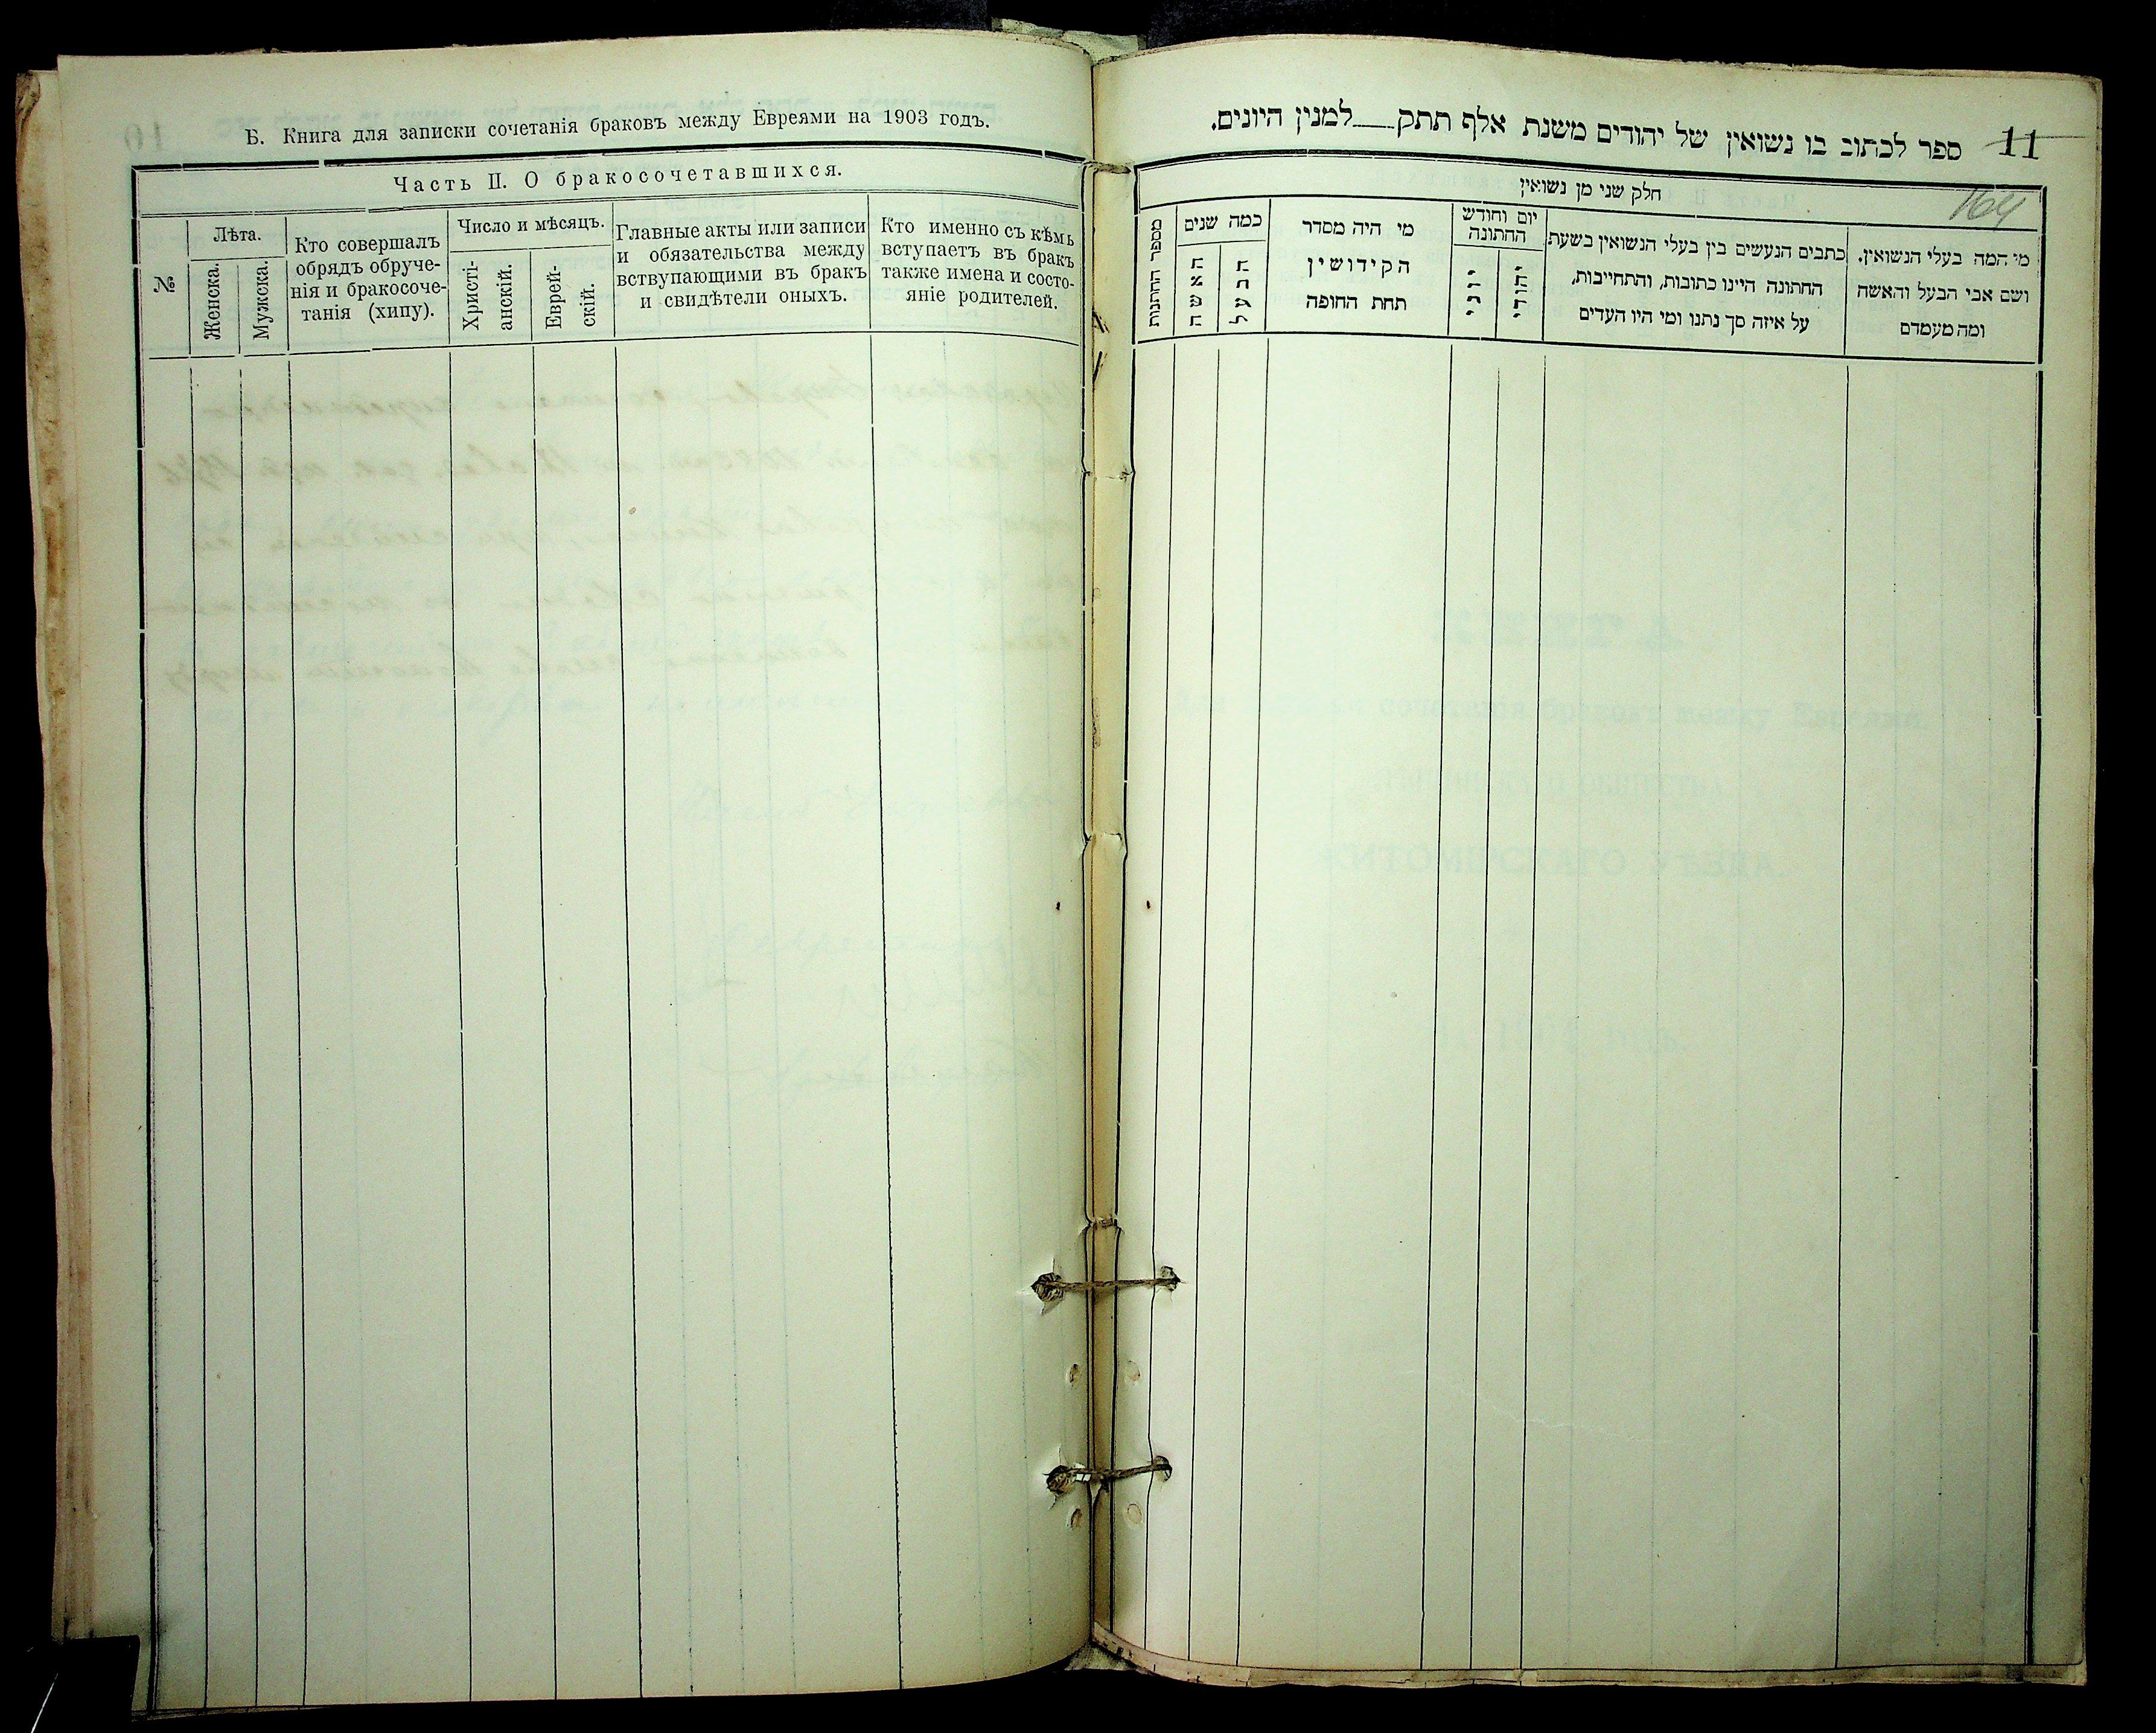 Б. Книга для записки сочетанія браковъ между Евреями на 1903 годъ.
Часть II. О бракосочетавшихся.
№
Лѣта.
Женска.
Мужска.
Кто совершалъ
обрядъ обруче-
нія и бракосоче-
танія (хипу).
Число и мѣсяцъ.
Христі-
анскій.
Еврей-
скій.
Главные акты или записи
и обязательства между
вствупающими въ бракъ
и свидѣтели оныхъ.
Кто именно съ кѣмъ
вступаетъ въ бракъ
также имена и состо-
яніе родителей.
11
ספר לכתוב בו נשואין של יהודים משנת אלף תתק__למנין היונים.
164
חלק שני מן נשואין
מי המה בעלי הנשואין.
ושם אבי הבעל והאשה
ומה מעמדם
כתבים הנעשים בין בעלי הנשואין בשעת
החתונה היינו כתובות, והתחייבות,
על איזה סך נתנו ומי היו העדים
יום וחודש
החתונה
יהודי
יוני
מי היה מסדר
הקידושין
תחת החופה
כמה שנים
הבעל
האשה
מספר החתונות